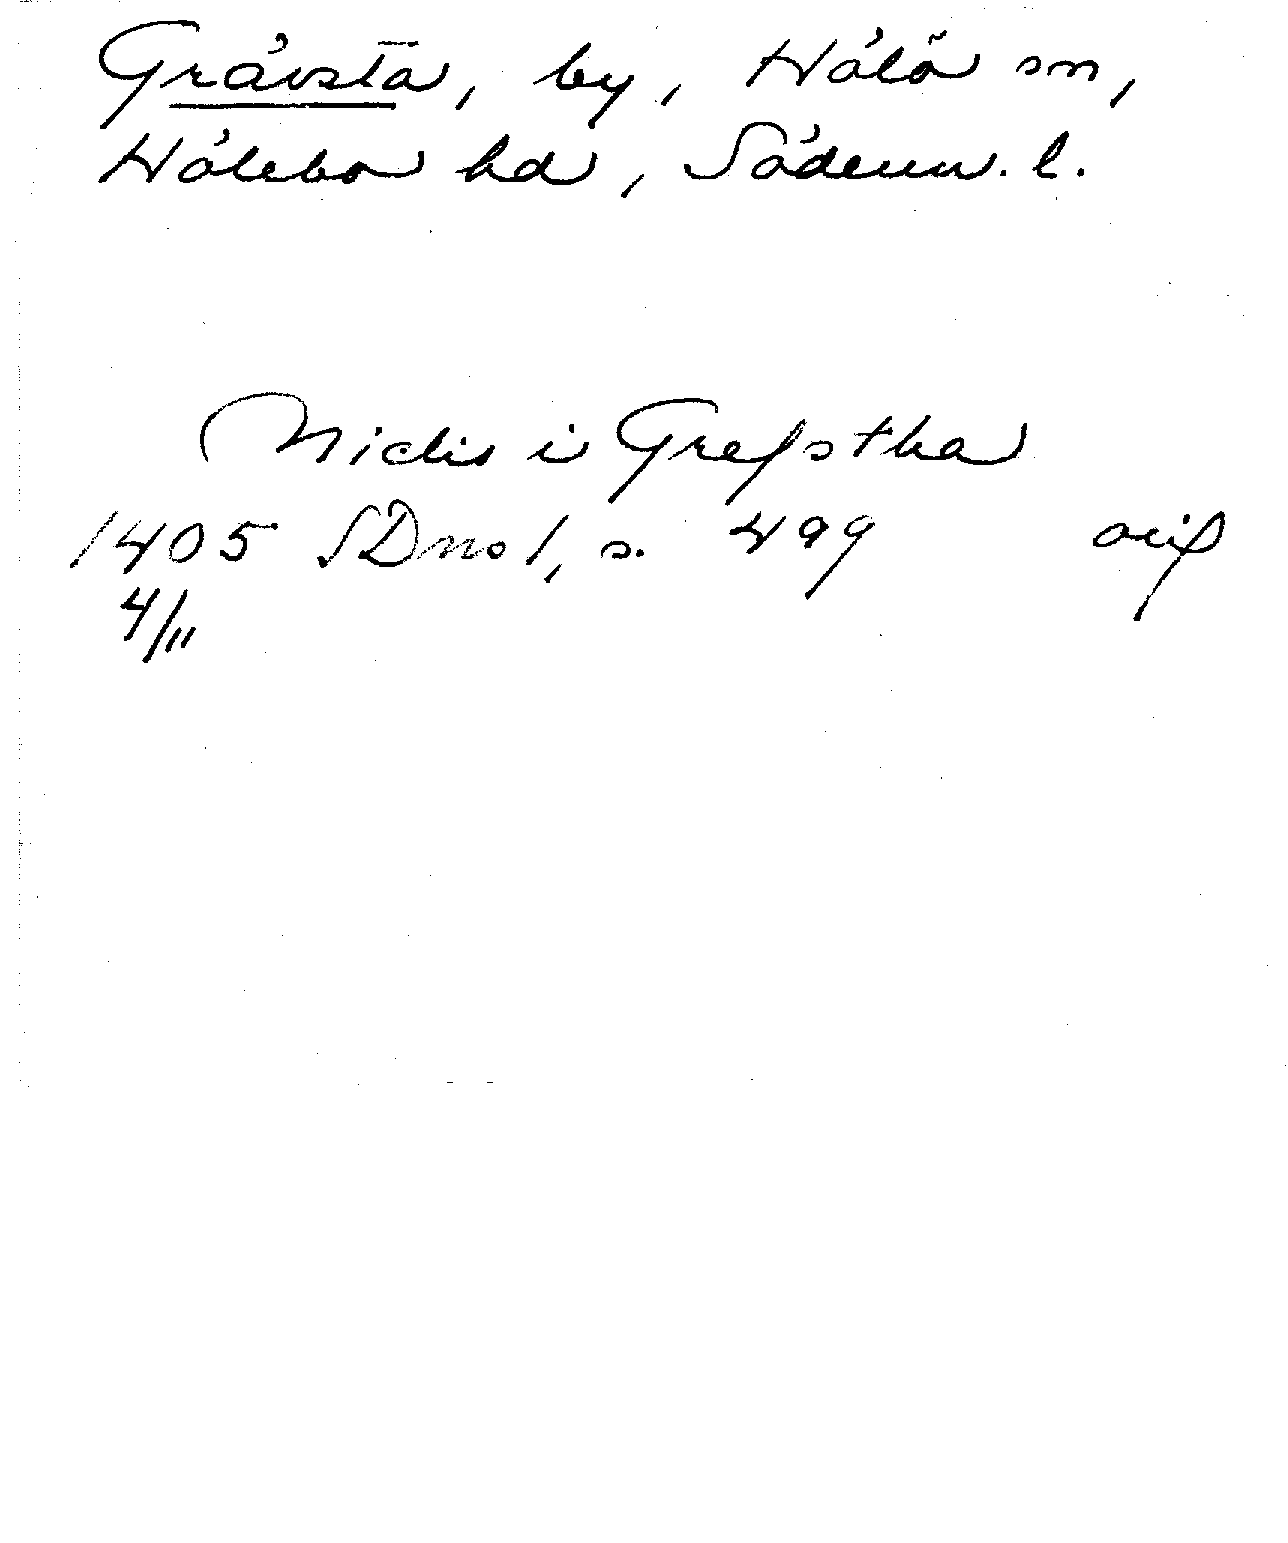 Grävsta, by, Hölö sn,
Hölebo hd, Söderm. l.
Niclis i Grefstha
1405 SDns 1, s. 499 avskr
4/11